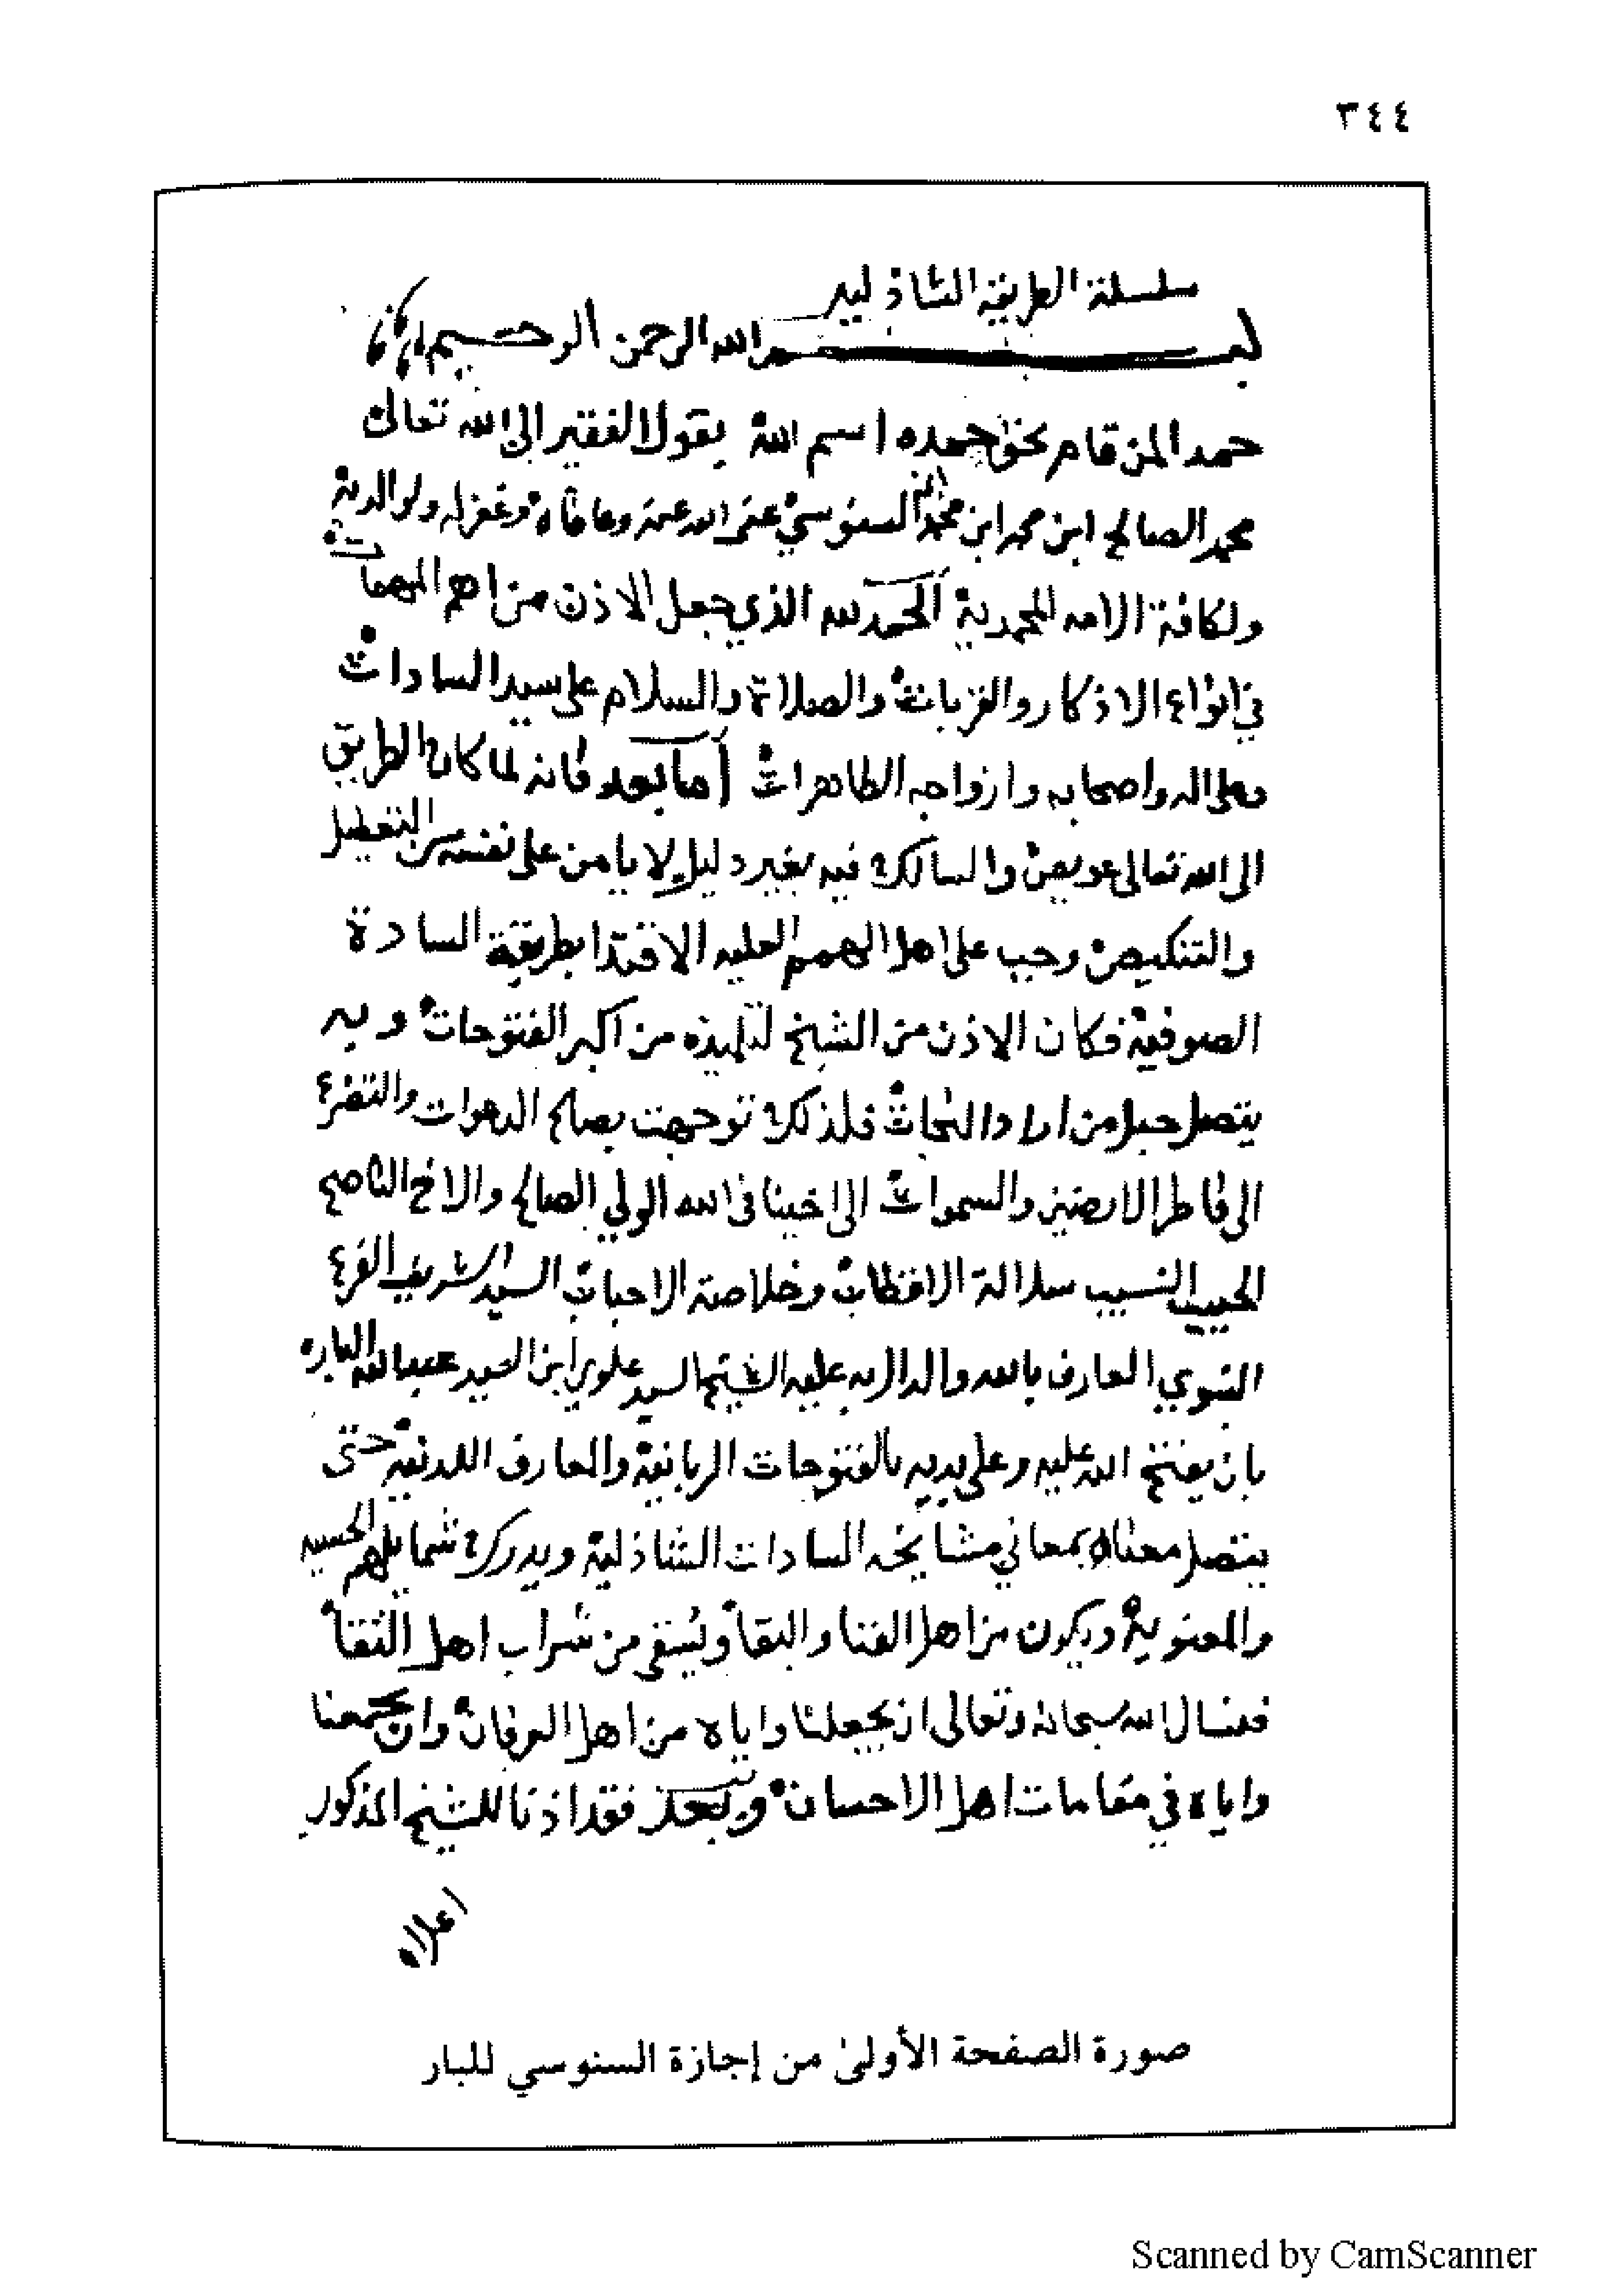 ٣٤٤
سلسلة الطريقة الشاذليه
بسم الله الرحمن الرحيم
حمد المن قام بحق حمده اسم الله يقول الفقير الى الله تعالى
محمد الصالح ابن محمد ابن محمد السنوسي عفى الله عنه وعافاه وغفر له ولوالديه
ولكافة الامه المحمدية الحمد لله الذي جعل الاذن من اهم المهمات
في انواع الاذكار والقربات والصلاة والسلام على سيد السادات
وعلى اله واصحابه وازواجه الطاهرات أما بعد فانه لما كان الطريق
الى الله تعالى عويص والسالك فيه بغير دليل لا يامن على نفسه من التعطيل
والتنكيص وجب على اهل الهمم العليه الاقتدا بطريقة السادة
الصوفية فكان الاذن من الشيخ لتلميذه من اكبر الفتوحات وبه
يتصل حبل من اراد النجات فلذلك توجهت بصالح الدعوات والتضرع
الى فاطر الارضين والسموات الى اخينا في الله الولي الصالح والاخ الناصح
الحبيب النسيب سلالة الاقطاب وخلاصة الاحباب السيد الشريف الفرع
النبوي العارف بالله والدال به عليه الشيخ السيد علوي ابن السيد عبدالله البار
بان يفتح الله عليه وعلى يديه بالفتوحات الربانية والمعارف اللدنية حتى
يتصل معناه بمعاني مشايخه السادات الشاذلية ويدرك شمايلهم الحسيه
والمعنوية ويكون من اهل الفنا والبقا ويسقى من شراب اهل التقا
فنسال الله سبحانه وتعالى ان يجعلنا واياه من اهل العرفان وان يجمعنا
واياه في مقامات اهل الاحسان وبعد فقد اذنا للشيخ المذكور
اعلاه
صورة الصفحة الأولىٰ من إجازة السنوسي للبار
Scanned by CamScanner